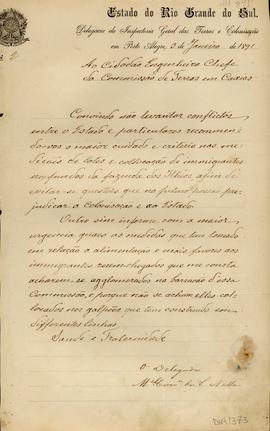 Estado do Rio Grande do Sul.
Delegacia da Inspectoria Geral das Terras e Colonisação
em Porto Alegre, 2 de Janeiro de 1891
Nº 2
Ao Cidadão Engenheiro Chefe
da Commissão de Terras em Caxias
Convindo não levantar conflictos
entre o Estado e particulares recommen-
do-vos o maior cuidado e criterio nas me-
dições de lotes e collocação de immigrantes
nos fundos da fazenda dos Ilhéos afim de
evitar-se questões que no futuro possa pre-
judicar a Colonisação e ao Estado.
Outro sim informe com a maior
urgencia quaes as medidas que tem tomado
em relação a alimentação e mais favores aos
immigrantes recemchegados que me consta
acharem-se agglomerados no barracão d'essa
Commissão, e porque não se acham elles col-
locados nos galpões, que tem construido em
differentes linhas.
Saude e Fraternidade
O Delegado
DIR1373